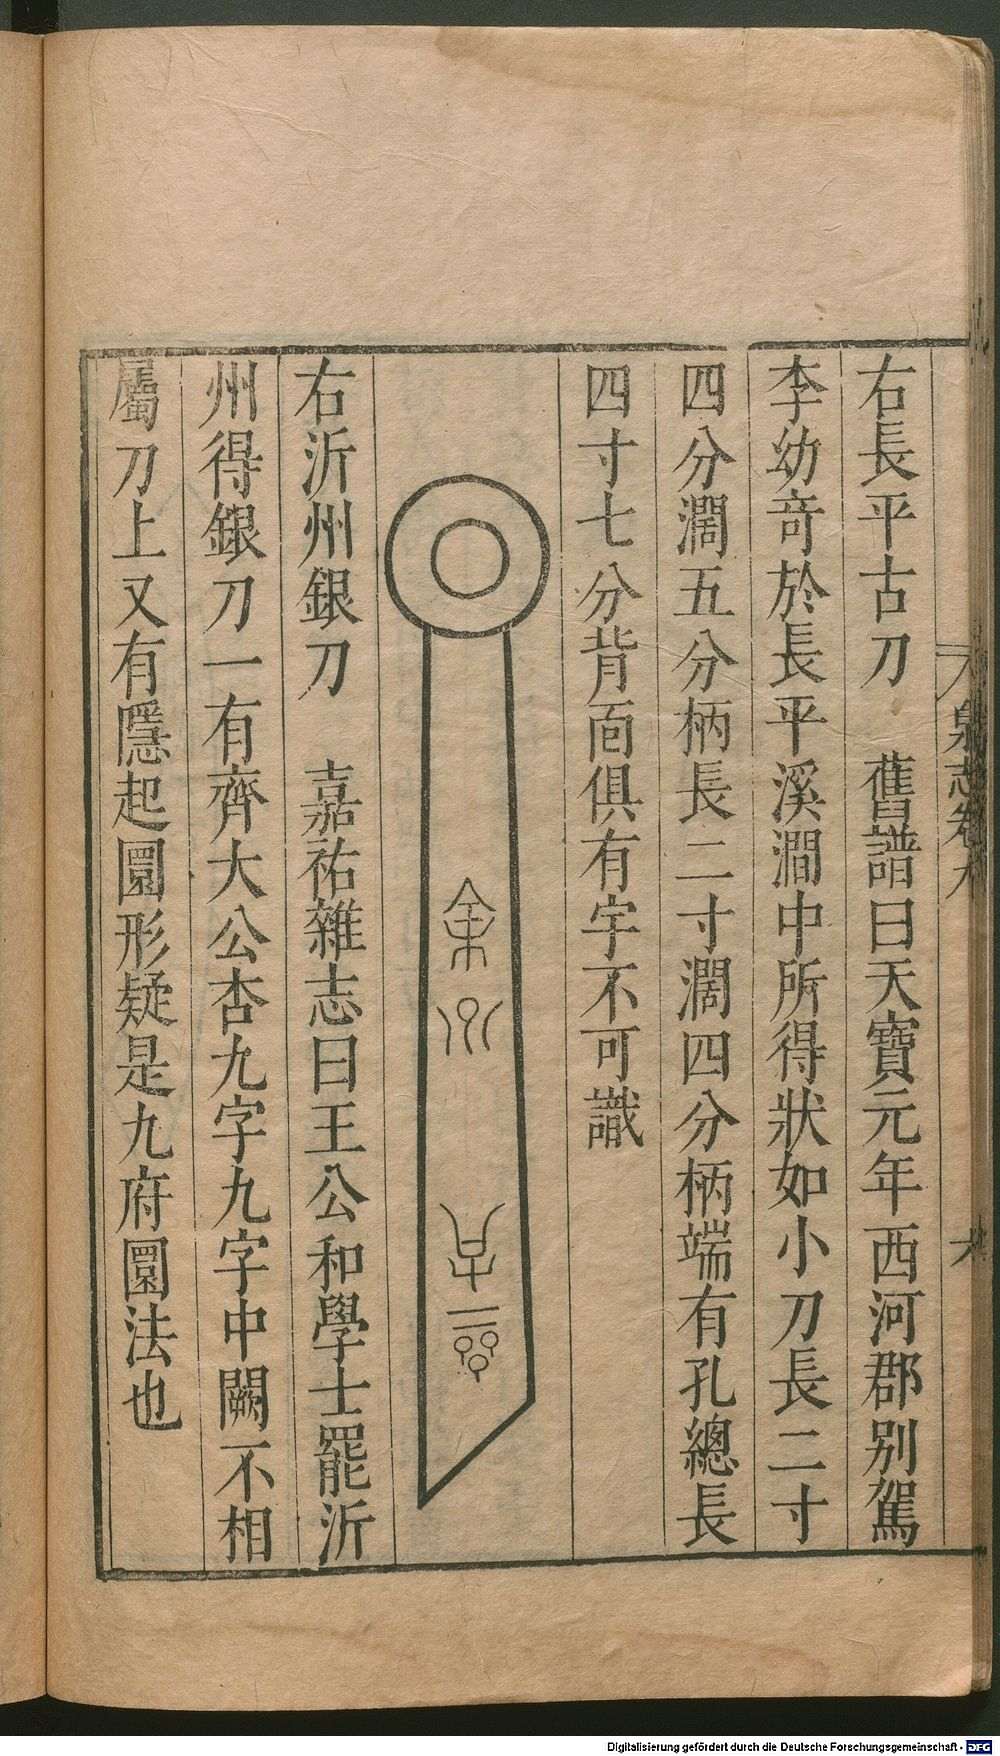 右長平古刀　舊譜曰天寶元年西河郡别駕
李幼竒於長平溪澗中所得狀如小刀長二寸
四分濶五分柄長二寸濶四分柄端有孔總長
四寸七分背面俱有字不可識
右沂州銀刀　嘉祐雜志曰王公和學士罷沂
州得銀刀一有齊大公杏九字九字中闕不相
屬刀上又有隱起圜形疑是九府圜法也
泉志卷九
六
Digitalisierung gefördert durch die Deutsche Forschungsgemeinschaft - DFG